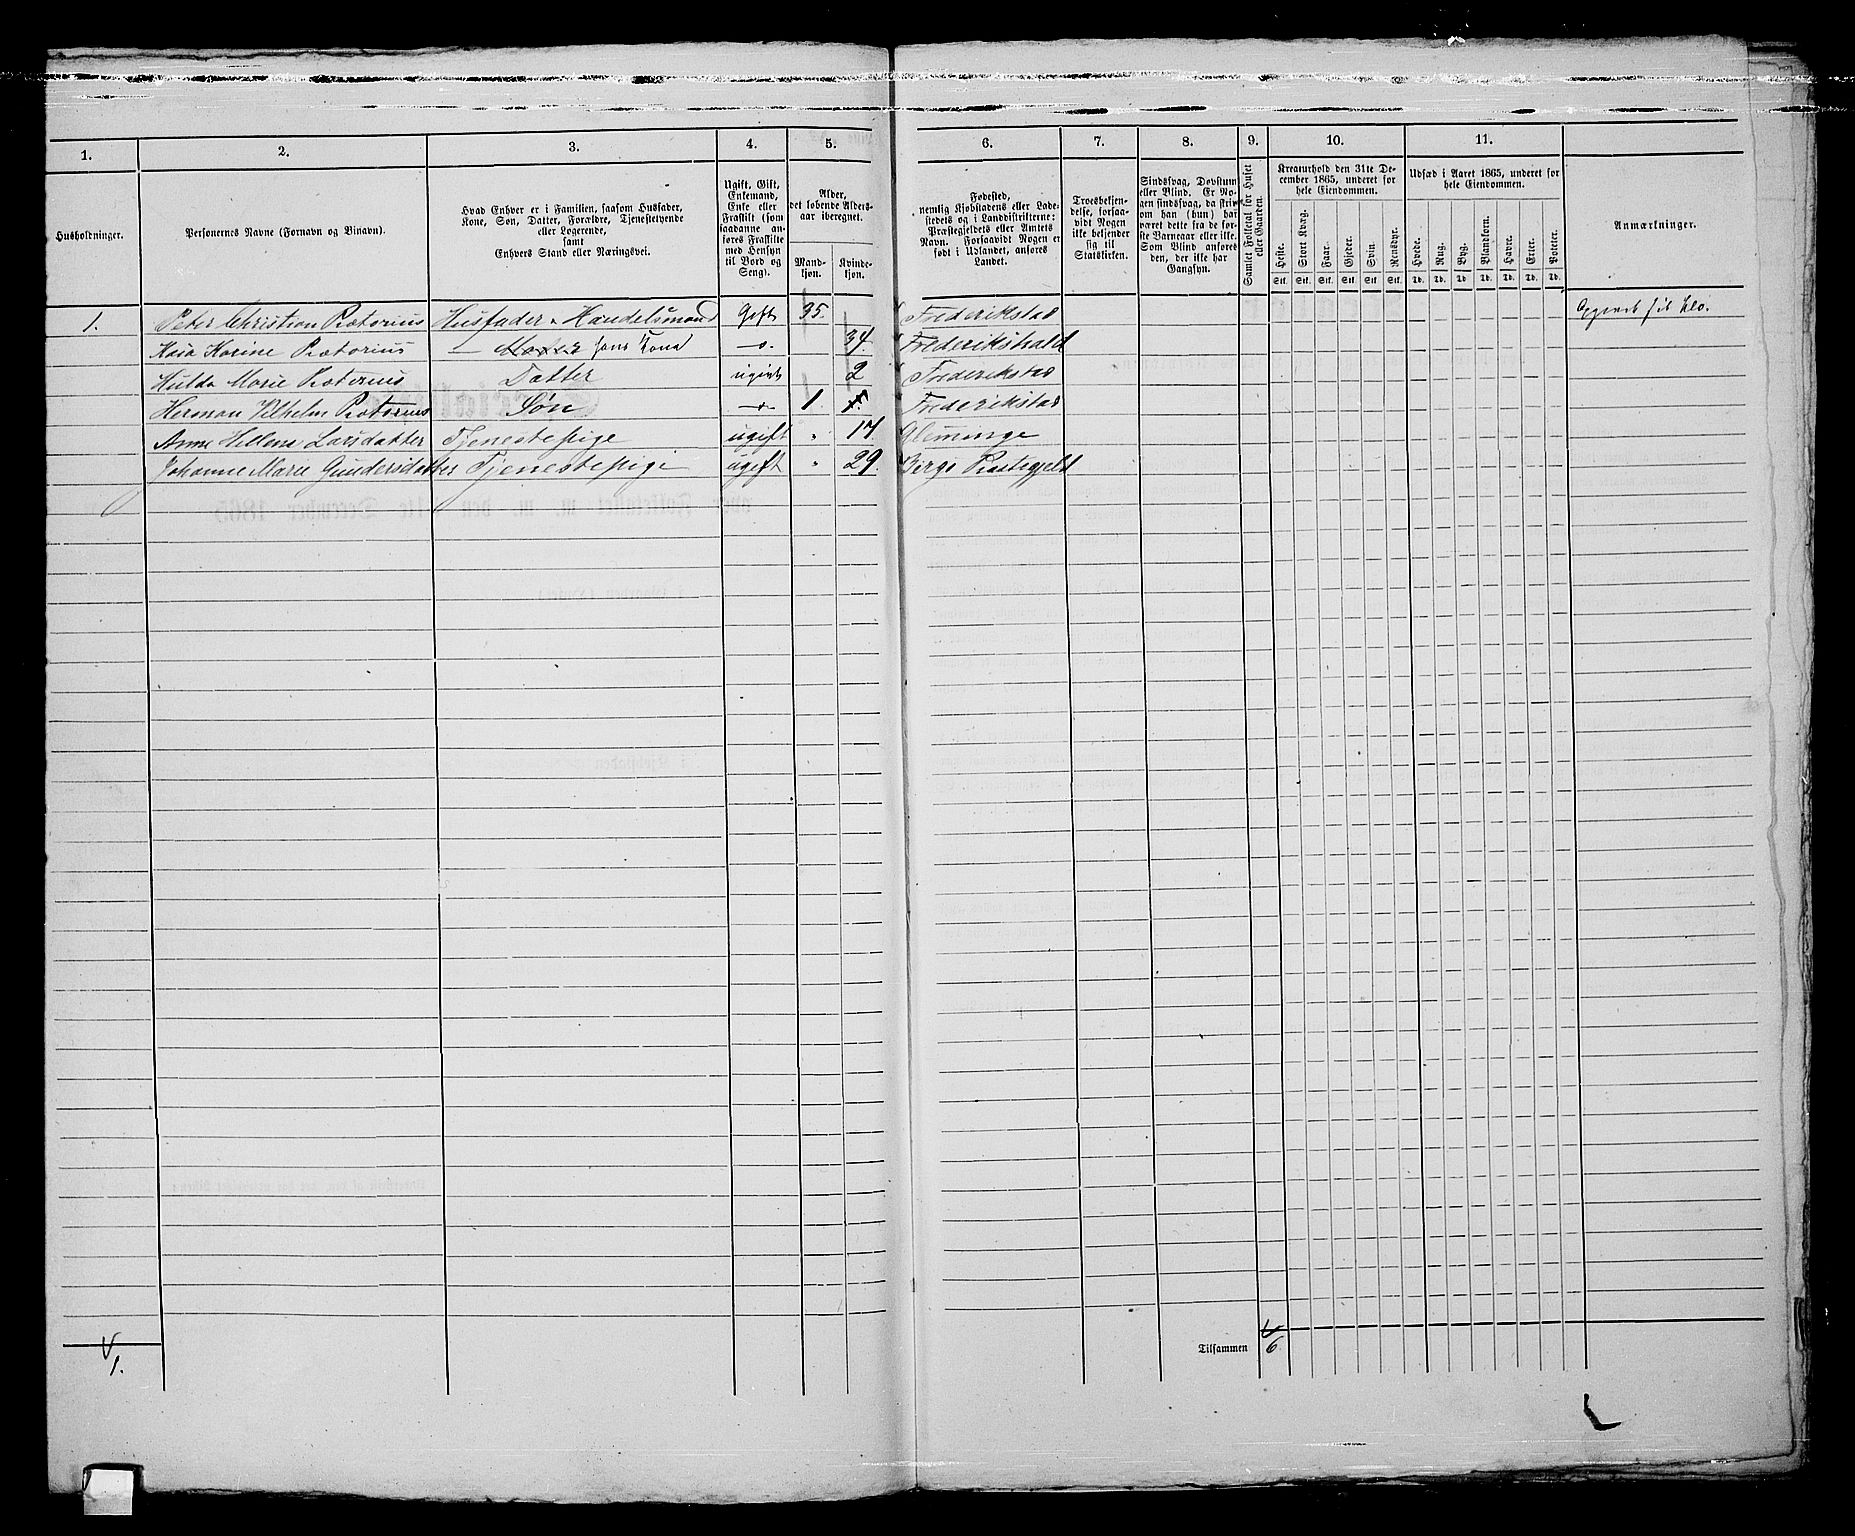 1. 2. 3. 4. 5. 6. 7. 8. 9. 10. 11.
Husholdninger.
Personernes Navne (Fornavn og Binavn).
Hvad Enhver er i Familien, saasom Husfader,
Kone, Søn, Datter, Forældre, Tjenestetyende
eller Logerende,
samt
Enhvers Stand eller Næringsvei.
Ugift, Gift,
Enkemand,
Enke eller
Fraskilt (som
saadanne an-
føres Fraskilte
med Hensyn
til Bord og
Seng).
Alder,
det løbende Alders-
aar iberegnet.
Mand-
kjøn.
Kvinde-
kjøn.
Fødested,
nemlig Kjøbstadens eller Lade-
stedets og i Landdistrikterne:
Præstegjeldets eller Amtets
Navn. Forsaavidt Nogen er
født i Udlandet, anføres
Landet.
Troesbekjen-
delse, forsaa-
vidt Nogen
ikke bekjender
sig til
Statskirken.
Sindssvag, Døvstum
eller Blind. Er No-
gen sindssvag, da skrives
om han (hun) har
været dette fra de før-
ste Barneaar eller ikke.
Som Blind anføres
den, der ikke har
Gangsyn.
Samlet Folketal for Huset
eller Gaarden.
Kreaturhold den 31te De-
cember 1865, underet for
hele Eiendommen.
Heste. Stort Kvæg. Faar. Gjeder. Svin. Rensdyr.
Stk. Stk. Stk. Stk. Stk. Stk.
Udsæd i Aaret 1865, underet for
hele Eiendommen.
Hvede. Rug. Byg. Blandkorn. Havre. Erter. Poteter.
Td. Td. Td. Td. Td. Td. Td.
Anmærkninger.
1. Peter Christian Prætorius Husfader Handelsmand Gift 35. Frederikstad
Karine Prætorius Moder hans Kona 34. Frederikshald
Hulda Marie Prætorius Datter ugivt 2 Frederikstad
Herman Vilhelm Prætorius Søn 1. Frederikstad
Anne Hellena Larsdatter Tjenestepige ugift " 17. Glemminge
Johanne Marie Gundersdatter Tjenestepige ugift " 29. Præstegjeld
1.
Tilsammen 6